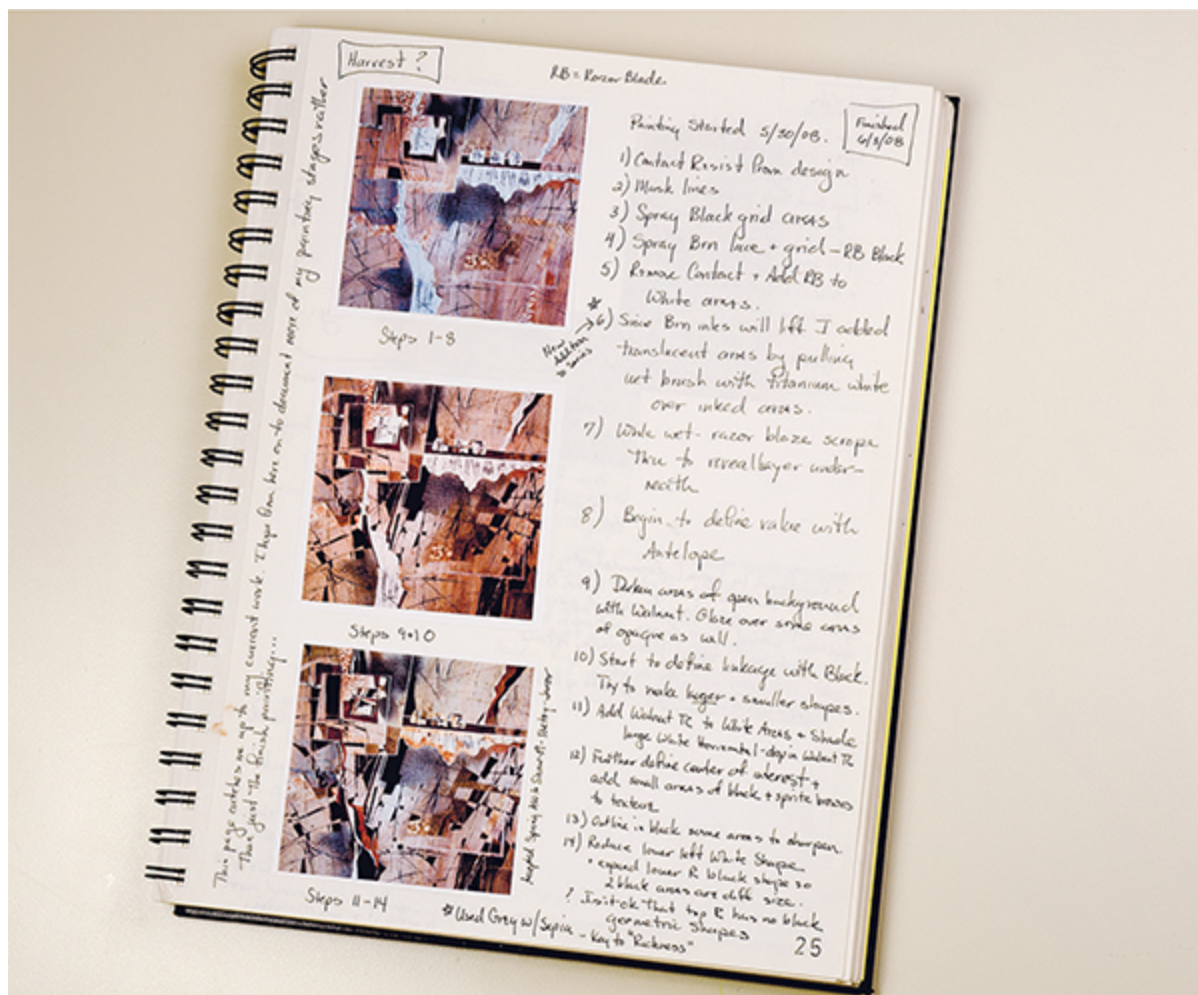 Harvest ?
RB = Razor Blade.
Painting Started 5/30/08.
Finished
6/3/08
1) Contact Resist from design
2) Mask lines
3) Spray Black grid areas
4) Spray Brn lace + grid – RB Black
5) Remove Contact + Add RB to
White areas.
*
New
Addition
to Series
6) Since Brn inks will lift I added
translucent areas by pulling
wet brush with titanium white
over inked areas.
7) While wet - razor blaze scrape
thru to reveal layer under-
neath
8) Begin to define value with
Antelope
9) Darken areas of open background
with Walnut. Glaze over some areas
of opaque as well.
10) Start to define linkage with Black.
Try to make larger + smaller shapes.
11) Add Walnut to White Areas + Shade
large White Horizontal - drop in Walnut
12) Further define center of interest +
add small areas of black +
to texture
13) Outline in black some areas to sharpen.
14) Reduce lower left White Shape
+ expand lower R black shape so
2 black areas are diff size.
? Is it ok that top R has no black
geometric shapes
Steps 1-8
Steps 9+10
Steps 11-14
* Used Grey w/ Sepia – Key to "Richness"
25
This page catches me up to my current work. I hope from here on to document more of my painting stages rather
than just the finish painting...